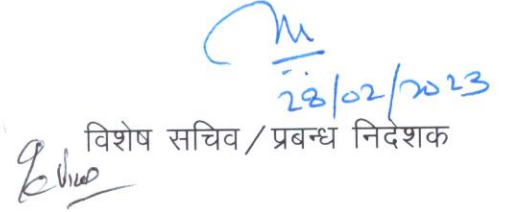 28/02/2023
विशेष सचिव / प्रबन्ध निदेशक